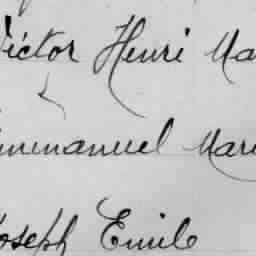 Victor Henri Ma
Emmanuel Mari
Joseph Emile